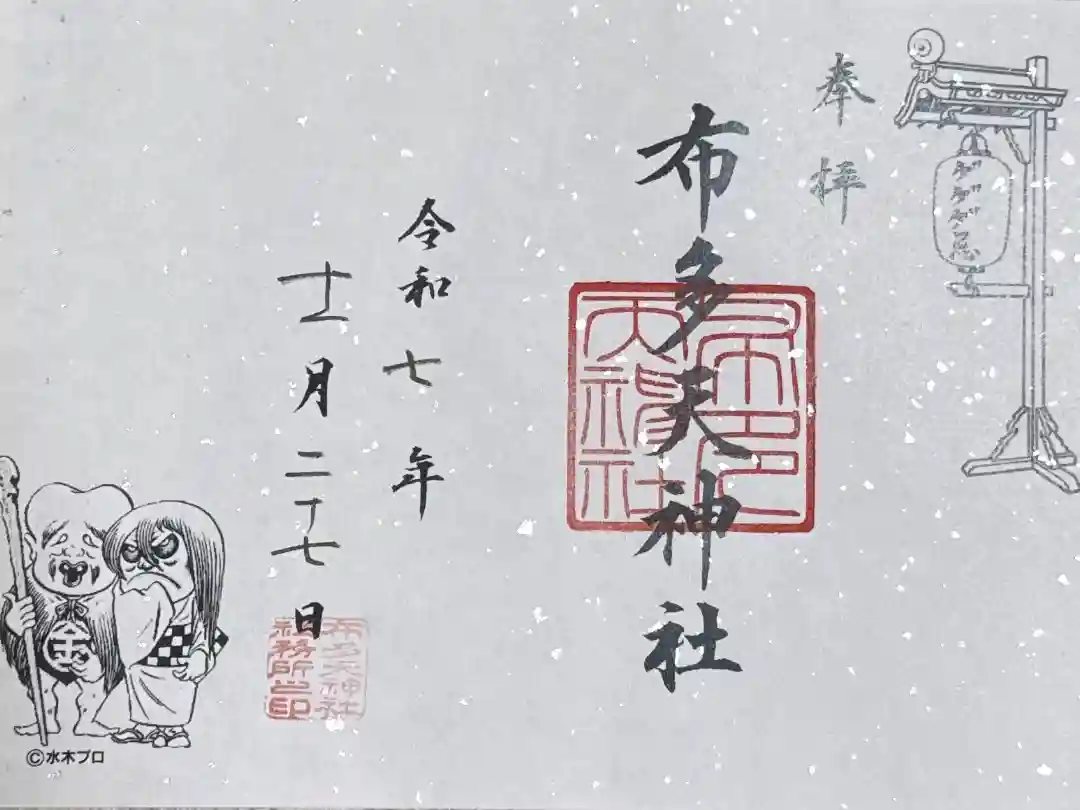 ゲゲゲ忌
奉拝
布多天神社
布多
天神社
令和七年
十一月二十七日
布多天神社
社務所之印
金
©水木プロ